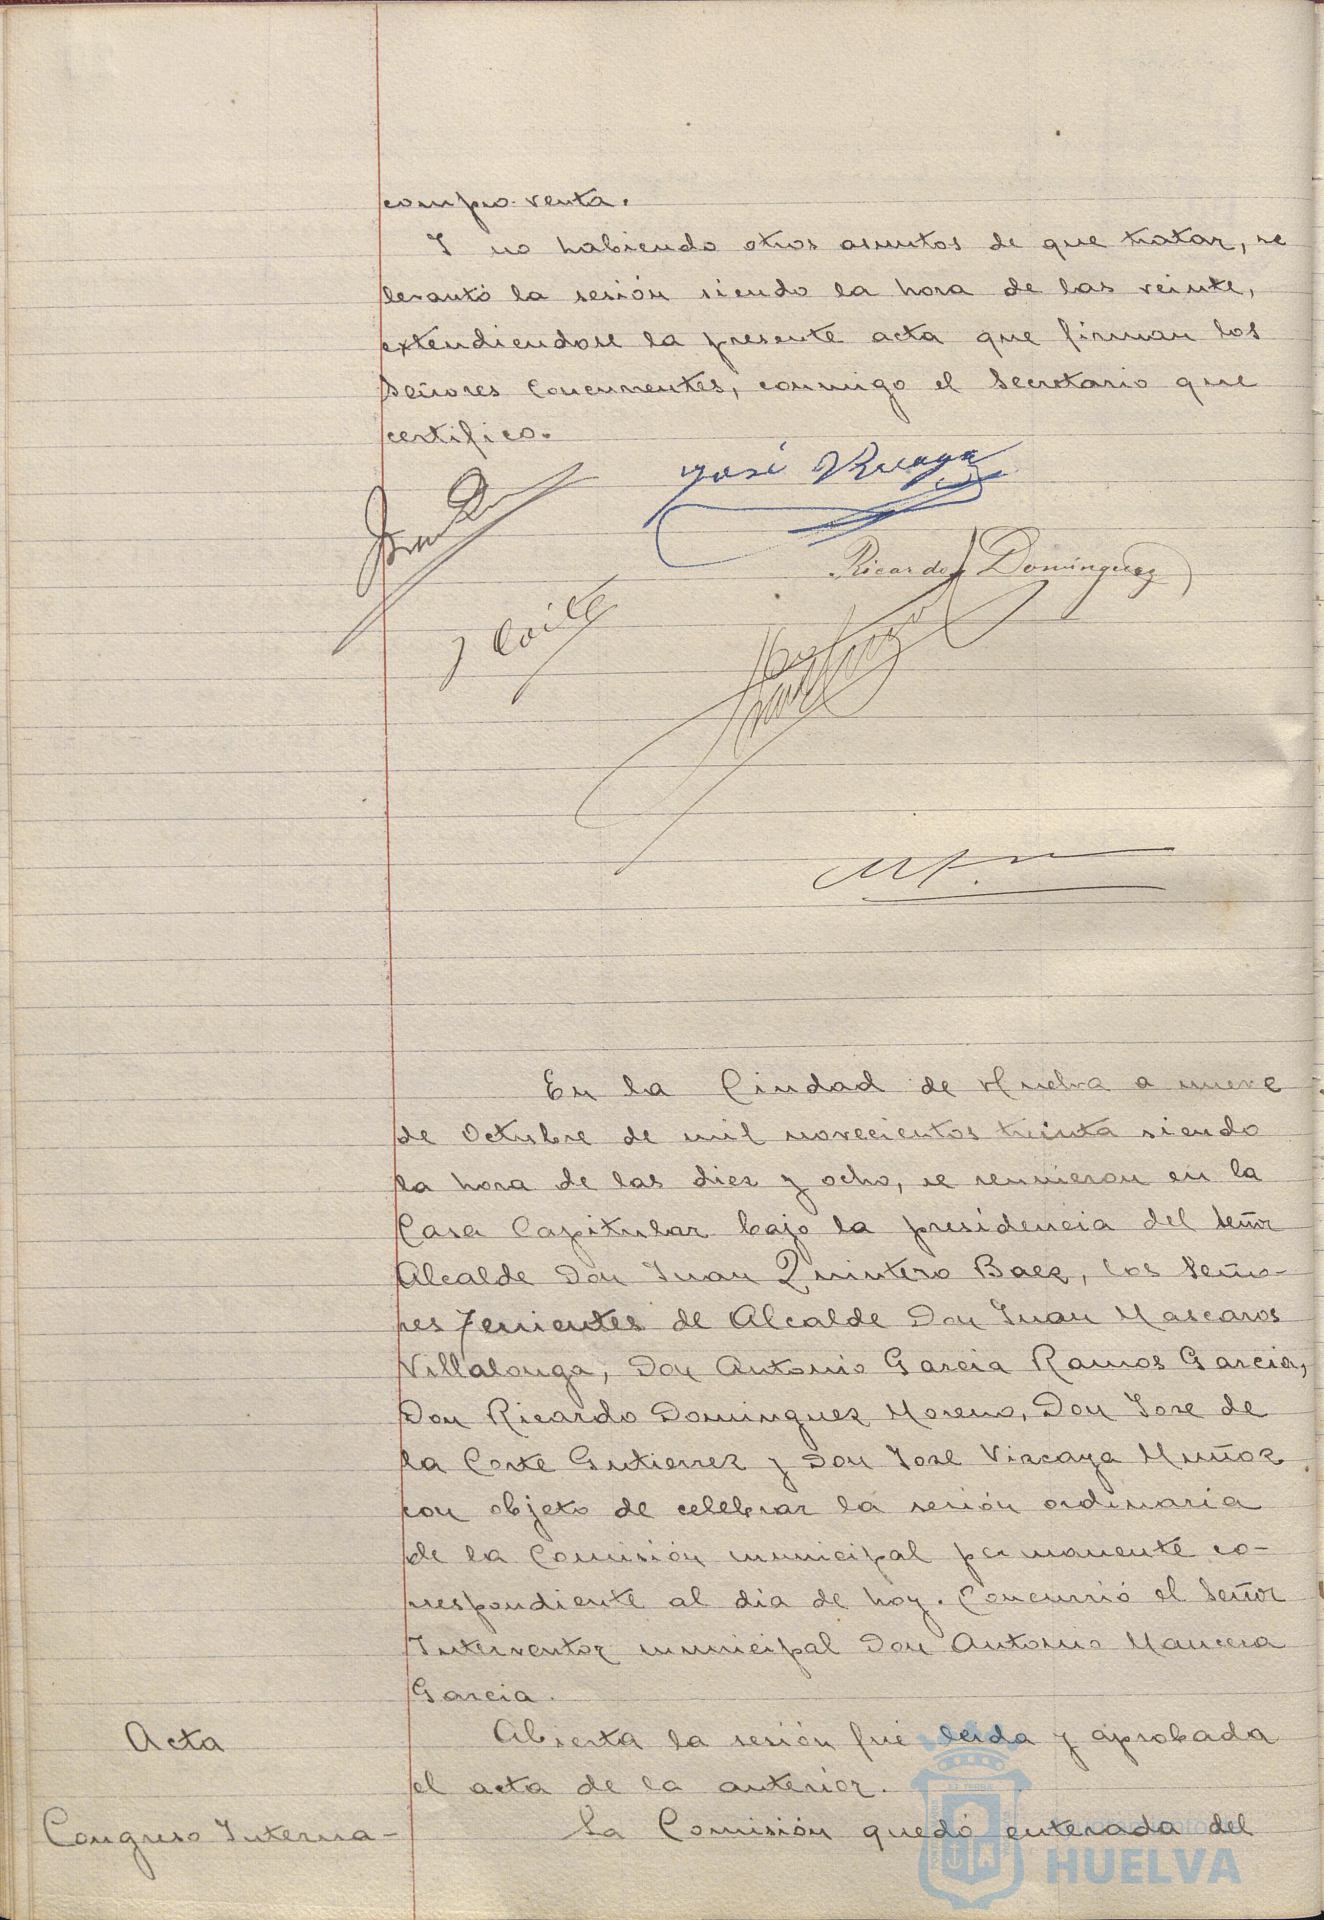 compra-venta.
Y no habiendo otros asuntos de que tratar, se
levantó la sesión siendo la hora de las veinte,
extendiendose la presente acta que firman los
Señores Concurrentes, conmigo el Secretario que
certifico.
José Vizcaya
Ricardo Dominguez
En la Ciudad de Huelva a nueve
de Octubre de mil novecientos treinta siendo
la hora de las diez y ocho, se reunieron en la
Casa Capitular bajo la presidencia del Señor
Alcalde Don Juan Quintero Baez, los Seño-
res Tenientes de Alcalde Don Juan Mascaros
Villalonga, Don Antonio Garcia Ramos Garcia,
Don Ricardo Dominguez Moreno, Don Jose de
la Corte Gutierrez y Don Jose Vizcaya Muñoz
con objeto de celebrar la sesión ordinaria
de la Comisión municipal permanente co-
rrespondiente al dia de hoy. Concurrió el Señor
Interventor municipal Don Antonio Mancera
Garcia.
Acta
Abierta la sesión fué leida y aprobada
el acta de la anterior.
Congreso Interna-
La Comisión quedó enterada del
HUELVA